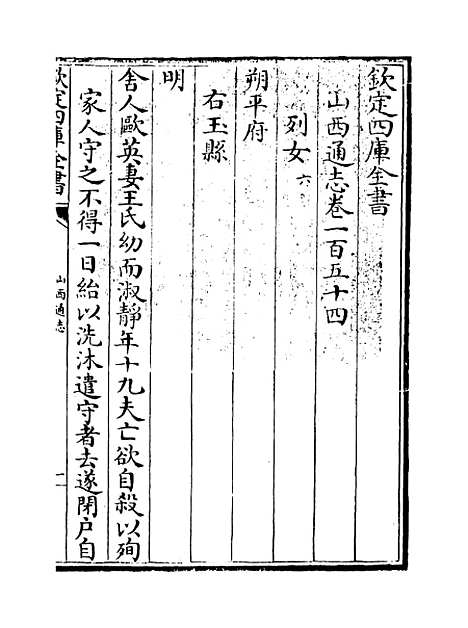 欽定四庫全書
山西通志卷一百五十四
列女六
朔平府
右玉縣
明
舍人歐英妻王氏幼而淑靜年十九夫亡欲自殺以殉
家人守之不得一日紿以洗沐遣守者去遂閉户自
欽定四庫全書
山西通志